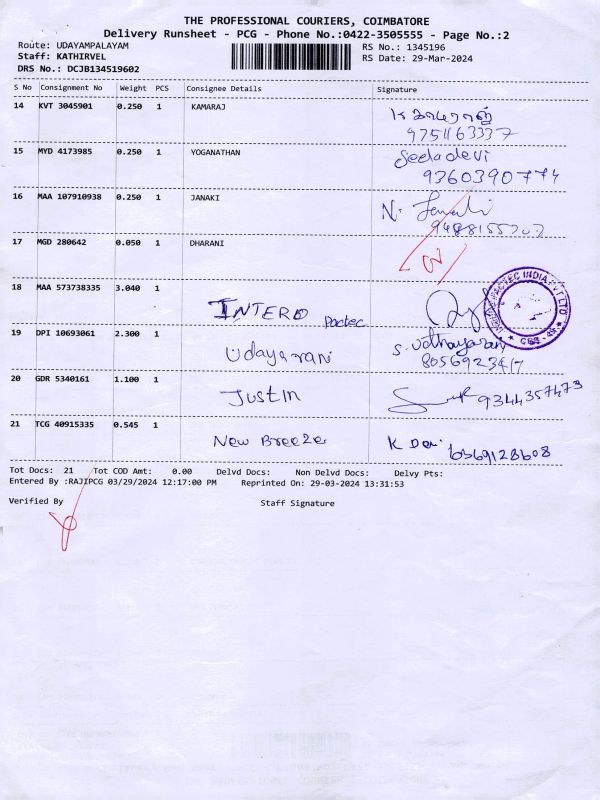 THE PROFESSIONAL COURIERS, COIMBATORE
Delivery Runsheet - PCG - Phone No.:0422-3505555 - Page No.:2
Route: UDAYAMPALAYAM RS No.: 1345196
Staff: KATHIRVEL RS Date: 29-Mar-2024
DRS No.: DCJB134519602
S No Consignment No Weight PCS Consignee Details Signature
14 KVT 3045901 0.250 1 KAMARAJ
9751163337
15 MYD 4173985 0.250 1 YOGANATHAN Seeladevi
9360390774
16 MAA 107910938 0.250 1 JANAKI N. Janaki
17 MGD 280642 0.050 1 DHARANI
18 MAA 573738335 3.040 1
INTERO Pactec
19 DPI 10693061 2.300 1 Udayarani S. Udhayarani
20 GDR 5340161 1.100 1 Justin 9344357473
21 TCG 40915335 0.545 1 New Breeze K Devi 6369128608
Tot Docs: 21 Tot COD Amt: 0.00 Delvd Docs: Non Delvd Docs: Delvy Pts:
Entered By :RAJIPCG 03/29/2024 12:17:00 PM Reprinted On: 29-03-2024 13:31:53
Verified By Staff Signature